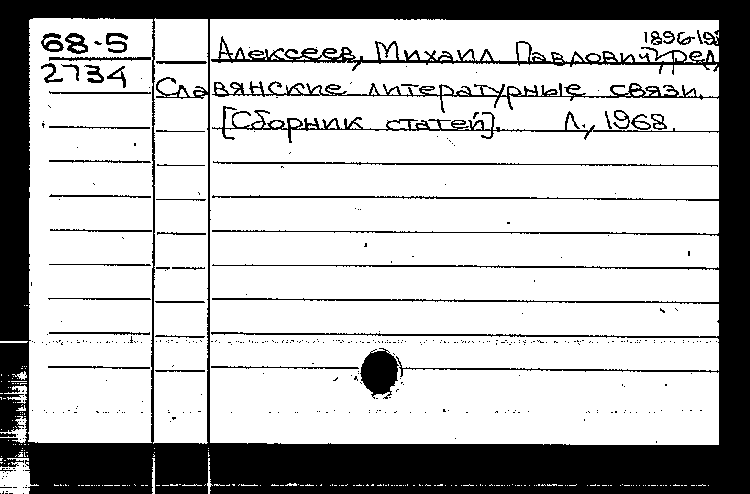 68-5
2734
1896-198
Алексеев, Михаил Павлович, ред.
Славянские литературные связи.
[Сборник статей]. Л., 1968.